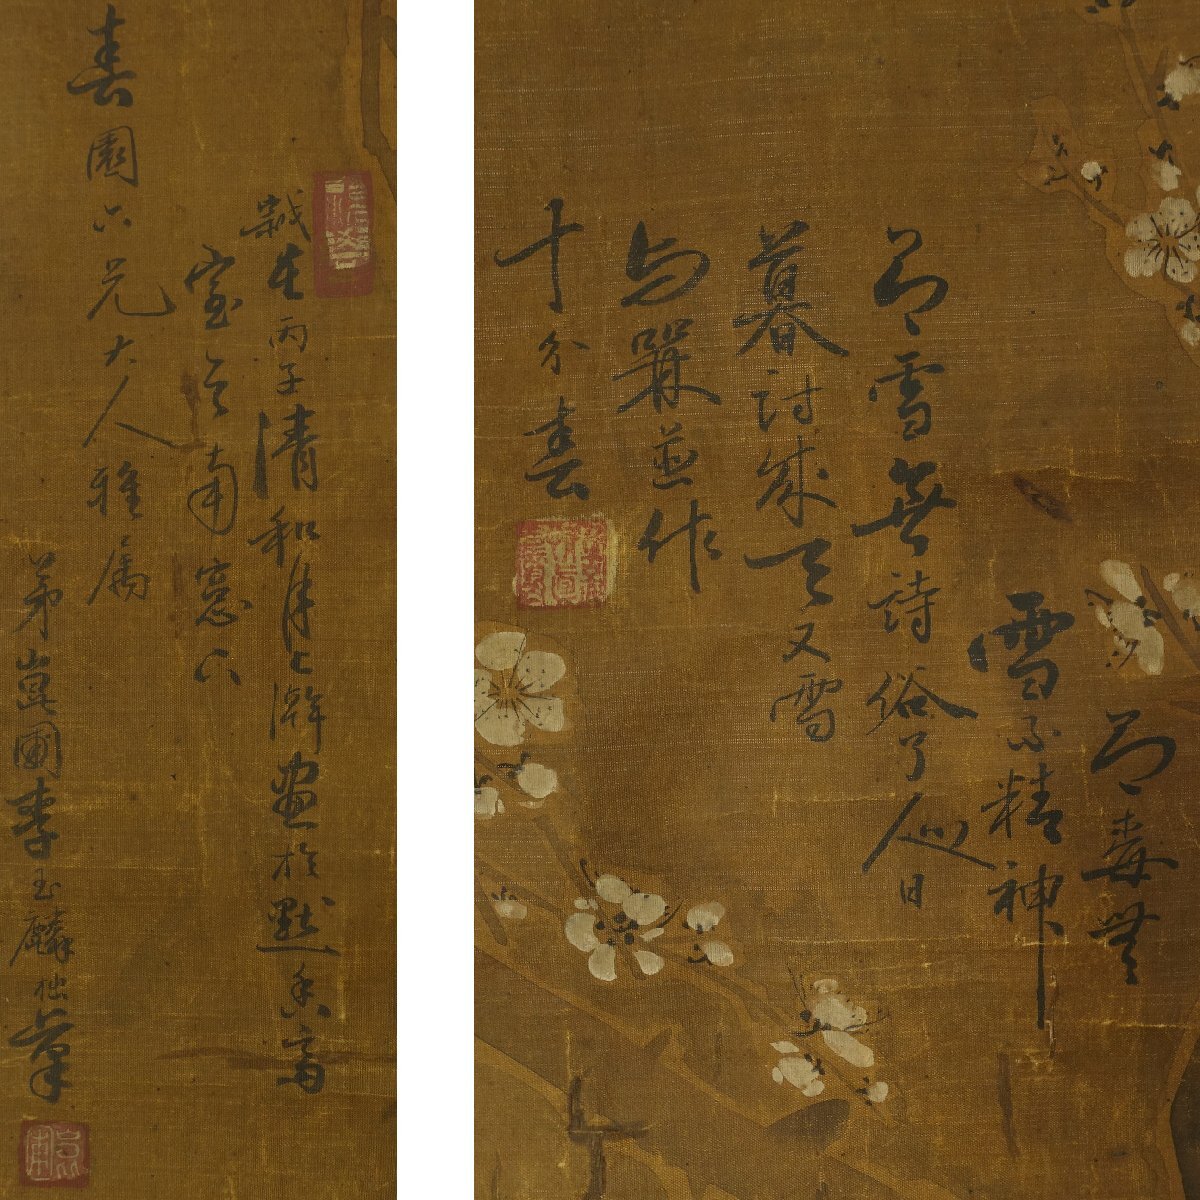 有梅無
雪不精神
有雪無詩俗了人日
暮詩成天又雪
与槑並作
十分春
歲在丙子清和月上澣畫於默香齋
室之南窓下
春園六兄大人雅屬
弟嵩圃李玉麟拙筆